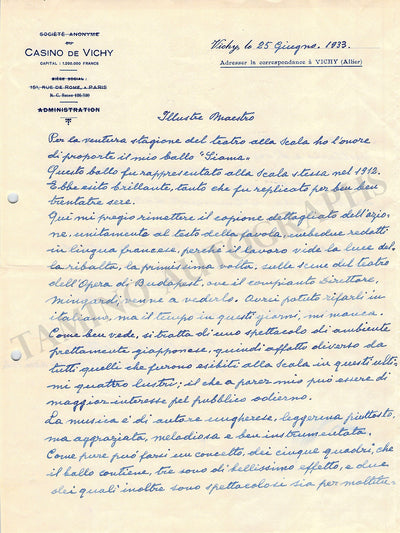 SOCIÉTÉ ANONYME
DU
CASINO DE VICHY
CAPITAL : 1.250.000 FRANCS
SIÈGE SOCIAL :
151, RUE DE ROME, A PARIS
ADMINISTRATION
Vichy, lo 25 Giugno. 1933.
Adresser la correspondance à VICHY (Allier)
Illustre Maestro
Per la ventura stagione del teatro alla Scala ho l'onore
di proporle il mio ballo "Siama".
Questo ballo fu rappresentato alla Scala stessa nel 1912.
Ebbe esito brillante, tanto che fu replicato per ben ben
trentatre sere.
Qui mi pregio rimettere il copione dettagliato dell'azio-
ne, unitamente al testo della favola, ambedue redatti
in lingua francese, perché il lavoro vide la luce del-
la ribalta, la prima ima volta, sulle scene del teatro
dell'Opera di Budapest, ove il compianto Direttore,
Mingardi, venne a vederlo. Avrei potuto rifarli in
italiano, ma il tempo in questi giorni, mi manca.
Come ben vede, si tratta di uno spettacolo di ambiente
prettamente giapponese, quindi affatto diverso da
tutti quelli che furono esibiti alla Scala in questi ulti-
mi quattro lustri; il che a parer mio può essere di
maggior interesse pel pubblico odierno.
La musica é di autore ungherese, leggerina piuttosto,
ma aggraziata, melodiosa e ben instrumentata.
Come pure può farsi un concetto, dei cinque quadri, che
il ballo contiene, tre sono di bellissimo effetto, e due
dei quali inoltre sono spettacolosi sia per moltitu-
TAMINO AUTOGRAPHS